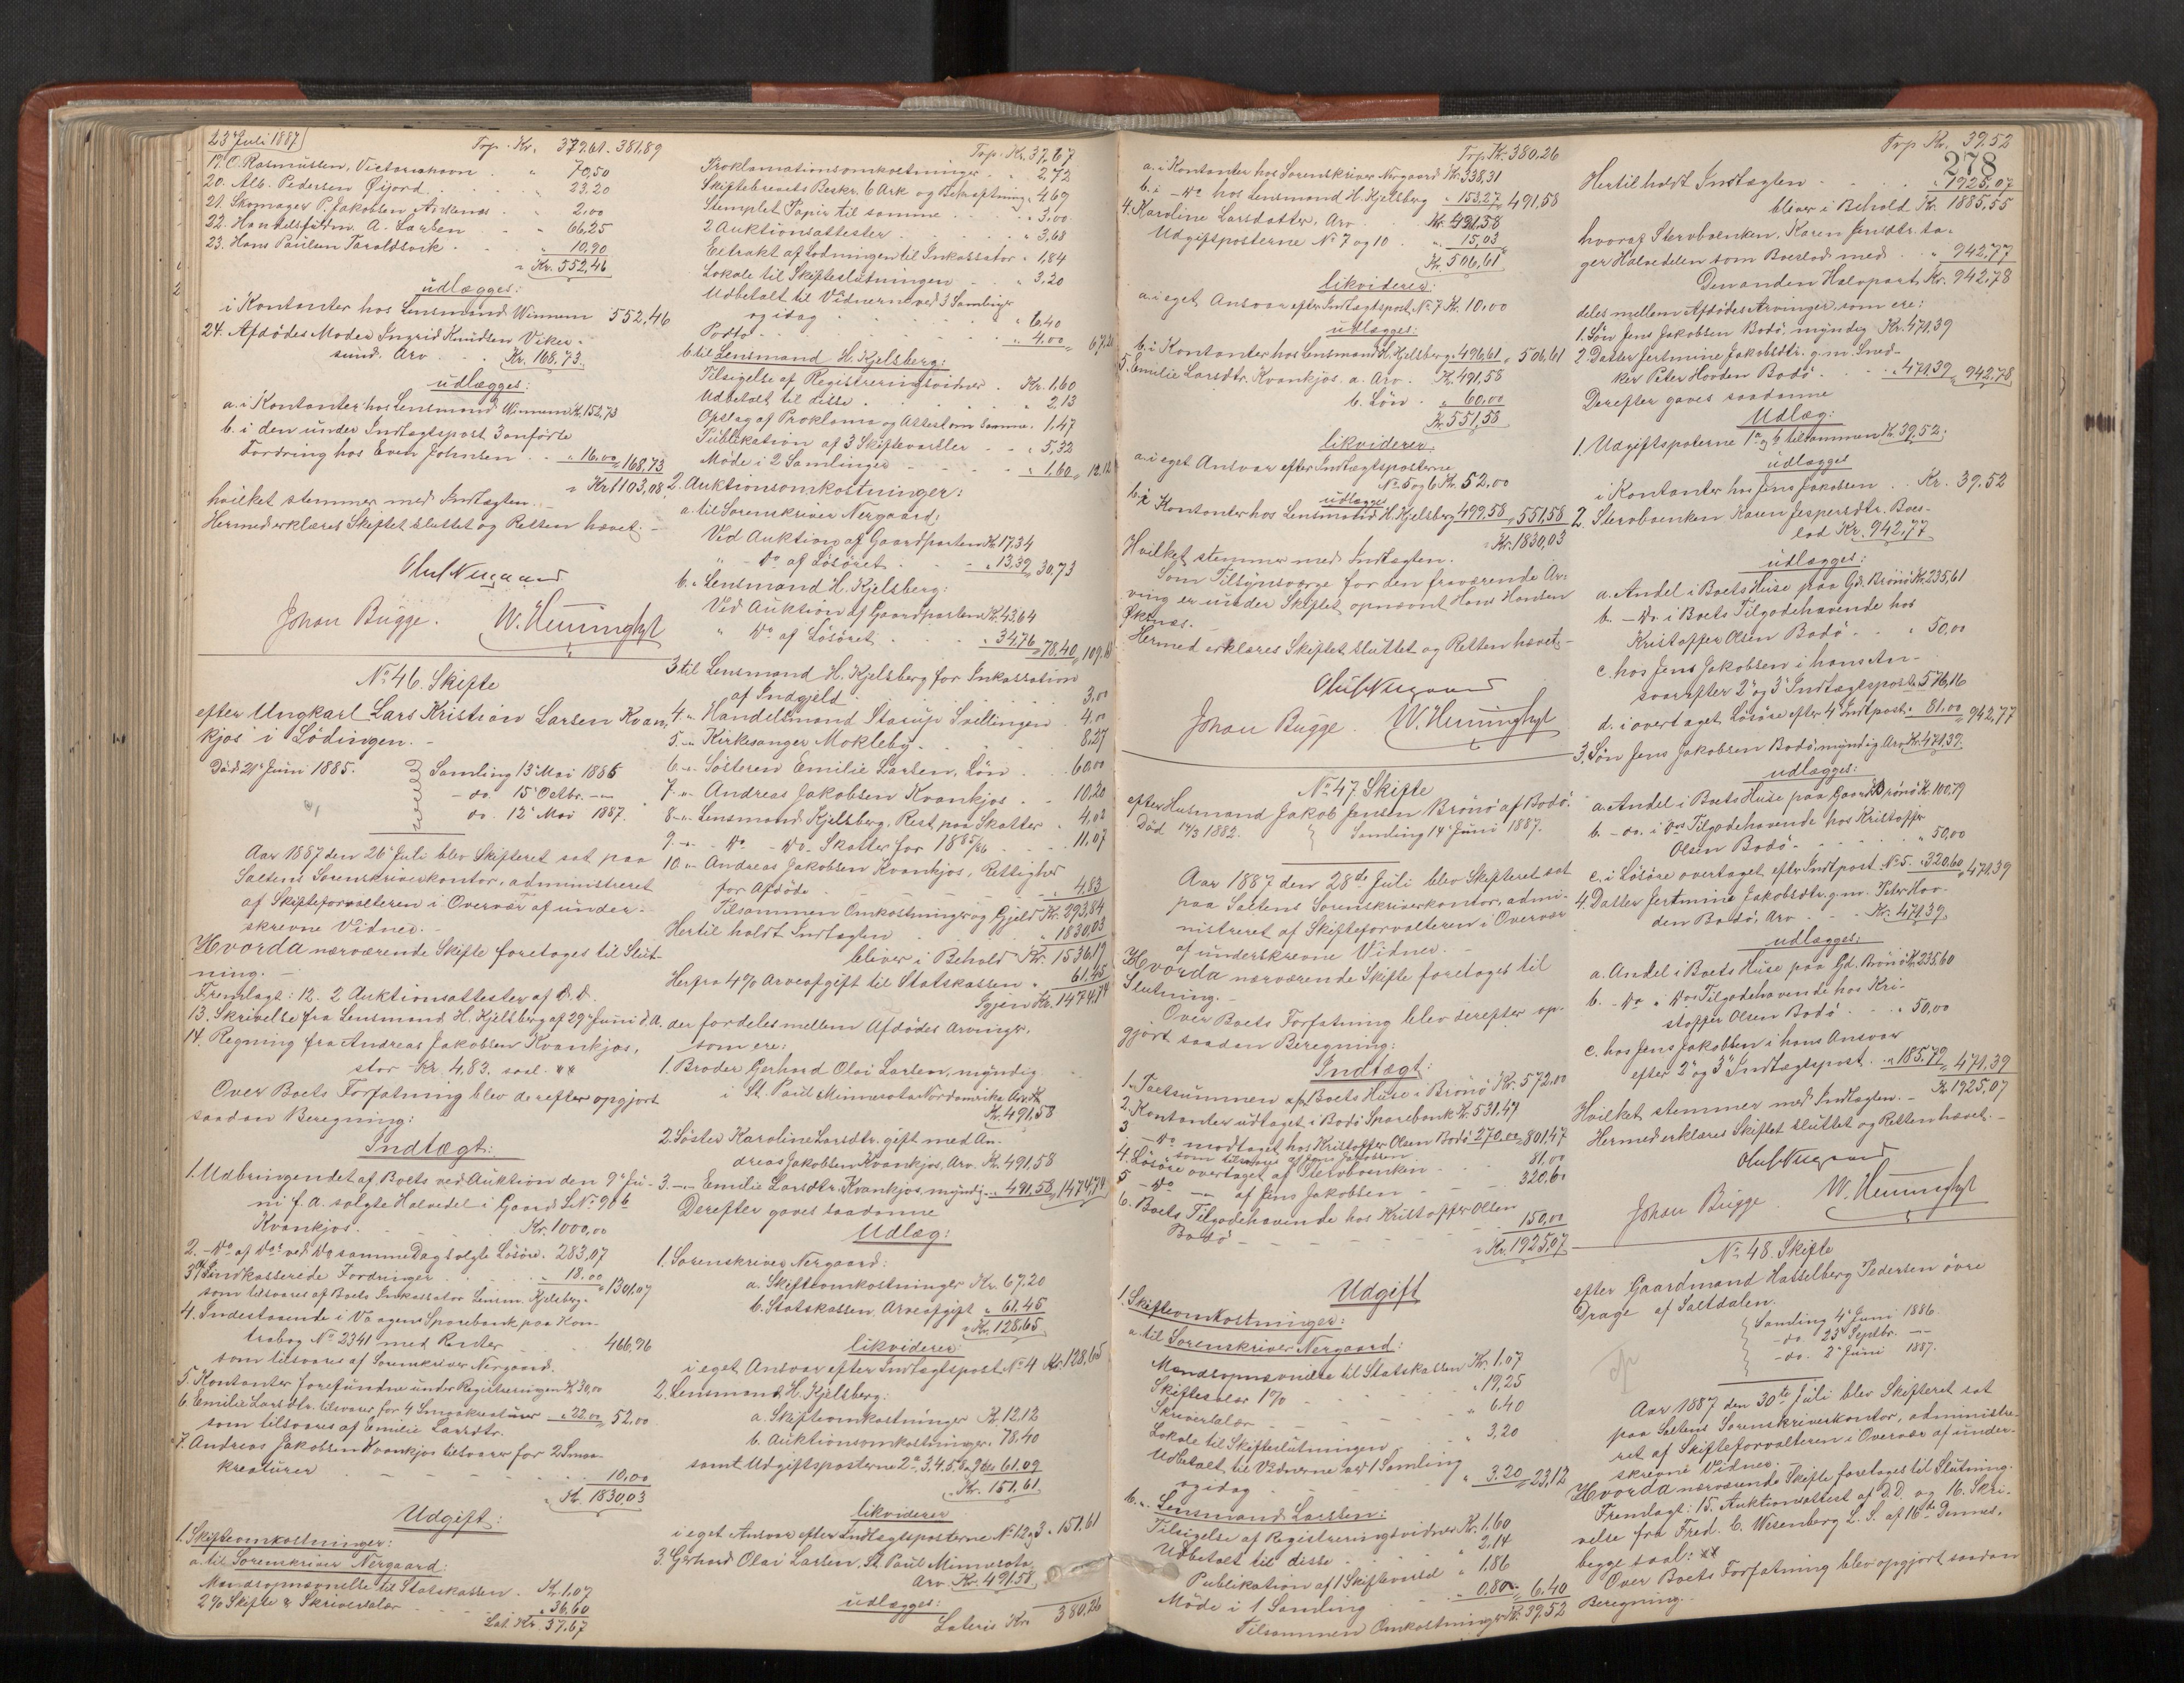 23 Juli 1887
Trp. Kr. 379.61. 381,89
19. C. Rasmussen, Victoriahavn " 70,50
20. Alb. Pedersen Öijord " 23.20
21. Skomager P. Jakobsen Ankenæs " 2,00
22. Handelsfuldm. A. Larsen " 66,25
23. Hans Paulsen Taraldsvik " 10,90
" Kr. 552,46
udlægges:
i Kontanter hos Lensmand Winnem 552,46
24. Afdödes Moder Ingrid Knudsen Viker-
sund. Arv Kr. 168.73.
udlægges:
a. i Kontanter hos Lensmand Winnem Kr. 152,73
b. i den under Indtægtspost 3 anförte
Fordring hos Even Johnsen " 16.00 " 168,73
" Kr. 1103,08
hvilket stemmer med Indtægten.
Hermed erklæres Skiftet sluttet og Retten hævet. -
Oluf Nergaard
Johan Bugge. W. Henninghjst
No. 46. Skifte
efter Ungkarl Lars Kristian Larsen Kvan-
kjos i Lödingen. -
Död 21 Juni 1885.
Samling 13 Mai 1886
- do. 15 Octbr. -"-
do. 12 Mai 1887.
Aar 1887 den 26 Juli blev Skifteret sat paa
Saltens Sorenskriverkontor, administreret
af Skifteforvalteren i Overvær af under-
skrevne Vidner. -
Hvorda nærværende Skifte foretoges til Slut-
ning. -
Fremlagt: 12. 2 Auktionsattester af D.D.
13. Skrivelse fra Lensmand H. Kjelsberg af 29 Juni d.A.
14. Regning fra Andreas Jakobsen Kvankjos,
stor Kr. 4,83. saal. **
Over Boets Forfatning blev derefter opgjort
saadan Beregning:
Indtægt:
1. Udbringendet af Boets ved Auktion den 9 Ju-
ni f.A. solgte Halvedel i Gaard L No. 90 b
Kvankjos. Kr. 1000,00
2. - Do af Dos ved Do samme Dag solgte Lösöre. 283,07
3. Indkasserede Fordringer " 18.00 " 1301.07
som tilsvares af Boets Inkassator Lensm. Kjelsberg.
4. Indestaaende i Vaagens Sparebank paa Kon-
trabog No. 2341 med Renter 466,96
som tilsvares af Sorenskriver Nergaard.
5. Kontanter forefundne under Registreringen Kr. 30,00
6. Emilie Larsdtr. tilsvarer for 4 Smaakreaturer " 22.00 " 52,00
som tilsvares af Emilie Larsdtr.
7. Andreas Jakobsen Kvankjos tilsvarer for 2 Smaa-
kreaturer " 10,00
" Kr. 1830,03
Udgift:
1. Skifteomkostninger:
a. til Sorenskriver Nergaard:
Mandsopnævnelse til Statskassen. Kr. 1,07
2% Skifte & Skriversalær " 36,60
Lat. Kr. 37,67
Trp. Kr. 37,67
Proklamationsomkostninger " 2,72
Skiftebrevets Beskr. 6 Ark og Bekræftning " 4,69
Stemplet Papir til samme " 3,00
2 Auktionsattester " 3,68
Extrakt af Lodningen til Inkassator " 1,84
Lokale til Skifteslutningen " 3,20
Udbetalt til Vidnerne ved 3 Samlinger
og idag " 6,40
Porto " 4,00 " 67,20
b. til Lensmand H. Kjelsberg:
Tilsigelse af Registreringsvidner Kr. 1,60
Udbetalt til disse " 2,13
Opslag af Proklama og Attest om samme " 1,47
Publikation af 3 Skiftevarsler " 5,32
Möde i 2 Samlinger " 1,60 " 12,12
2. Auktionsomkostninger:
a. til Sorenskriver Nergaard:
Ved Auktion af Gaardparten Kr. 17,34
" - Do af Lösöret " 13,39 " 30,73
b. " Lensmand H. Kjelsberg:
Ved Auktion af Gaardparten Kr. 43,64
" Do af Lösöret " 34,76 " 78,40 " 109.13
3. til Lensmand H. Kjelsberg for Inkassation
af Indgjeld 3,00
4. " Handelsmand Starup Svellingen 4,00
5. " Kirkesanger Mokleby 8,27
6. " Sösteren Emilie Larsen, Lön 60,00
7. " Andreas Jakobsen Kvankjos 10,20
8. " Lensmand Kjelsberg, Rest paa Skatter 4,02
9. " Do - Do - Skatter for 1885/86 11,07
10. " Andreas Jakobsen Kvankjos, Rettigher
for Afdöde " 4,83
Tilsammen Omkostninger og Gjeld Kr. 293,84
Hertil holdt Indtægten " 1830,03
bliver i Behold Kr. 1536,19
Herfra 4% Arveafgift til Statskassen " 61,45
Igjen Kr. 1474,74
der fordeles mellem Afdödes Arvinger,
som ere:
1. Broder Gerhard Olai Larsen, myndig
i St. Paul Minnesota Nordamerika Arv Kr.
Kr. 491,58
2. Söster Karoline Larsdtr. gift med An-
dreas Jakobsen Kvankjos, Arv. Kr. 491,58
3. -"- Emilie Larsdtr. Kvankjos, myndig " 491,58 " 1474,74
Derefter gaves saadanne
Udlæg:
1. Sorenskriver Nergaard:
a. Skifteomkostninger Kr. 67,20
b. Statskassen, Arveafgift " 61,45
" Kr. 128,65
likviderer
i eget Ansvar efter Indtægtspost No. 4 Kr. 128,65
2. Lensmand H. Kjelsberg:
a. Skifteomkostninger Kr. 12,12
b. Auktionsomkostninger " 78,40
samt Udgiftsposterne 2a, 3.4.5.8 og 9 tils. 61.09
" Kr. 151,61
likviderer
i eget Ansvar efter Indtægtsposterne No. 1 2 og 3 " 151.61
3. Gerhard Olai Larsen, St. Paul Minnesota,
Arv. Kr. 491,58
udlægges:
Lateris Kr. 380,26
Trp Kr. 380.26
a. i Kontanter hos Sorenskriver Nergaard Kr. 338,31
b. i - Do hos Lensmand H. Kjelsberg " 153,27 " 491,58
4. Karoline Larsdatter. Arv Kr. 491,58
Udgiftsposterne No. 7 og 10 " 15,03
Kr. 506,61
likviderer:
a. i eget Ansvar efter Indtægtspost No. 7 Kr. 10,00
udlægges:
b. i Kontanter hos Lensmand H. Kjelsberg " 496,61 " 506,61
5. Emilie Larsdtr. Kvankjos. a. Arv. Kr. 491,58
b. Lön " 60,00
Kr. 551,58
likviderer:
a. i eget Ansvar efter Indtægtsposterne
No. 5 og 6 Kr. 52,00
udlægges
b. i Kontanter hos Lensmand H. Kjelsberg 499,58 " 551,58
" Kr. 1830,03
Hvilket stemmer med Indtægten.
Som Tilsynsværge for den fraværende Ar-
ving er under Skiftet opnævnt Hans Hansen
Öknæs.
Hermed erklæres Skiftet sluttet og Retten hævet. -
Oluf Nergaard
Johan Bugge W. Henninghjst
No. 47. Skifte
efter Husmand Jakob Jensen Brönö af Bodö.
Död 14/3 1882.
Samling 14 Juni 1887.
Aar 1887 den 28de Juli blev Skifteret sat
paa Saltens Sorenskriverkontor, admi-
nistreret af Skifteforvalteren i Overvær
af underskrevne Vidner. -
Hvorda nærværende Skifte foretoges til
Slutning. -
Over Boets Forfatning blev derefter op-
gjort saadan Beregning:
Indtægt:
1. Taxtsummen af Boets Huse i Brönö Kr. 572,00
2. Kontanter udtaget i Bodö Sparebank Kr. 531,47
3 - Do modtaget hos Kristoffer Olsen Bodö 270,00 " 801,47
som tilsvares af Jens Jakobsen
4. Lösöre overtaget af Stervboenken 81,00
5 - Do -"- af Jens Jakobsen 320,60
6. Boets Tilgodehavende hos Kristoffer Olsen
Bodö 150,00
" Kr. 1925,07
Udgift
1. Skifteomkostninger:
a. til Sorenskriver Nergaard:
Mandsopnævnelse til Statskassen Kr. 1,07
Skiftesalær 1% " 19,25
Skriversalær " 6.40
Lokale til Skifteslutningen " 3,20
Udbetalt til Vidnerne ved 1 Samling
og idag " 3.20 " 23,12
b. " Lensmand Larssen:
Tilsigelse af Registreringsvidner Kr. 1,60
Udbetalt til disse " 2,14
Publikation af 1 Skiftevarsel " 1,86
Möde i 1 Samling " 0,80 " 6,40
Tilsammen Omkostninger Kr. 39,52
Trp Kr. 39.52
278
Hertil holdt Indtægten " 1925,07
bliver i Behold Kr. 1885,55
hvoraf Stervboenken, Karen Jensdtr. ta-
ger Halvedelen som Boeslod med " 942,77
Den anden Halvpart Kr. 942,78
deles mellem Afdödes Arvinger, som ere:
1. Sön Jens Jakobsen Bodö, myndig Kr. 471.39
2. Datter Jertmine Jakobsdtr. g.m. Sned-
ker Peter Hovden Bodö " 471,39 " 942,78
Derefter gaves saadanne
Udlæg:
1. Udgiftsposterne 1 a og b tilsammen Kr. 39,52.
udlægges
i Kontanter hos Jens Jakobsen Kr. 39.52
2. Stervboenken Karen Jespersdtr. Boes-
lod Kr. 942,77
udlægges:
a. Andel i Boets Huse paa Gd. Brönö Kr. 235,61
b. - Do i Boets Tilgodehavende hos
Kristoffer Olsen Bodö " 50,00
c. hos Jens Jakobsen i hans An-
svar efter 2 og 3 Indtægtspost " 576,16
d. i overtaget Lösöre efter 4 Indtpost " 81,00 " 942,77
3. Sön Jens Jakobsen Bodö, myndig Arv Kr. 471,39.
udlægges:
a. Andel i Boets Huse paa Gaard Brönö Kr. 100,79
b. - do. i Dos Tilgodehavende hos Kristoffer
Olsen Bodö " 50,00
c. i Lösöre overtaget efter Indtpost No. 5 " 320.60 " 471.39
4. Datter Jertmine Jakobsdtr. g.m. Peter Hov-
den Bodö. Arv Kr. 471.39
udlægges:
a. Andel i Boets Huse paa Gd. Brönö Kr. 235,60
b. - Do " Dos Tilgodehavende hos Kri-
stoffer Olsen Bodö " 50,00
c. hos Jens Jakobsen i hans Ansvar
efter 2 og 3 Indtægtspost " 185.79 " 471,39
Kr. 1925,07
Hvilket stemmer med Indtægten. -
Hermed erklæres Skiftet sluttet og Retten hævet. -
Oluf Nergaard
Johan Bugge W. Henninghjst
No. 48. Skifte
efter Gaardmand Hasselberg Pedersen övre
Drage af Saltdalen.
Samling 4 Juni 1886.
- do. 23 Septbr. -"-
- do. 2 Juni 1887.
Aar 1887 den 30te Juli blev Skifteret sat
paa Saltens Sorenskriverkontor, administre-
ret af Skifteforvalteren i Overvær af under-
skrevne Vidner.
Hvorda nærværende Skifte foretoges til Slutning.
Fremlagt: 15. Auktionsattest af D.D. og 16. Skri-
velse fra Fred. C. Wesenberg L.S. af 16de Dennes,
begge saal: **
Over Boets Forfatning blev opgjort saadan
Beregning.